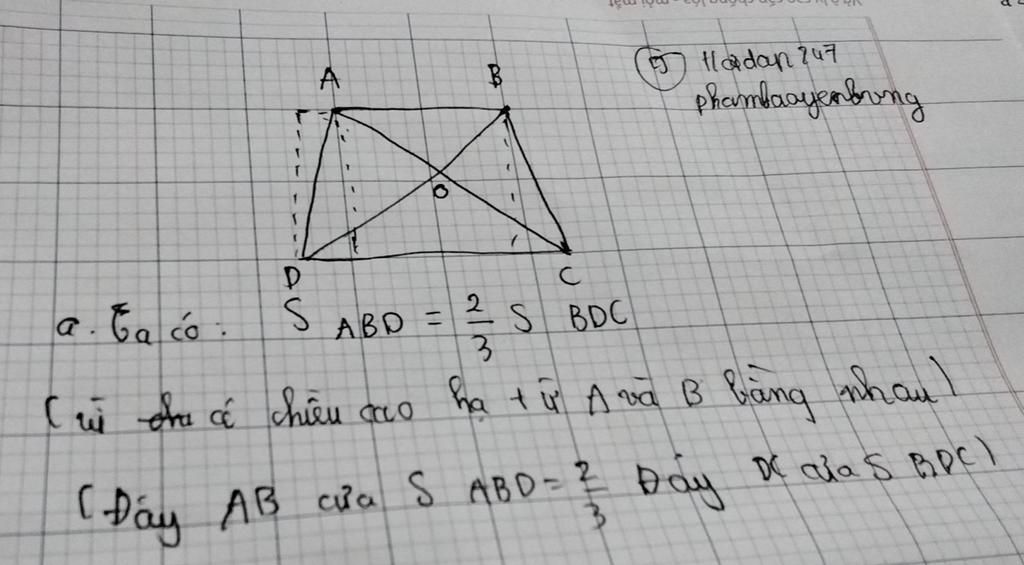 A B
⑤ Hoidap247
phambaoyenhung
O
D C
a. Ta có: S ABD = 2/3 S BDC
(vì có chiều cao hạ từ A và B bằng nhau)
(Đáy AB của S ABD = 2/3 Đáy DC của S BDC)